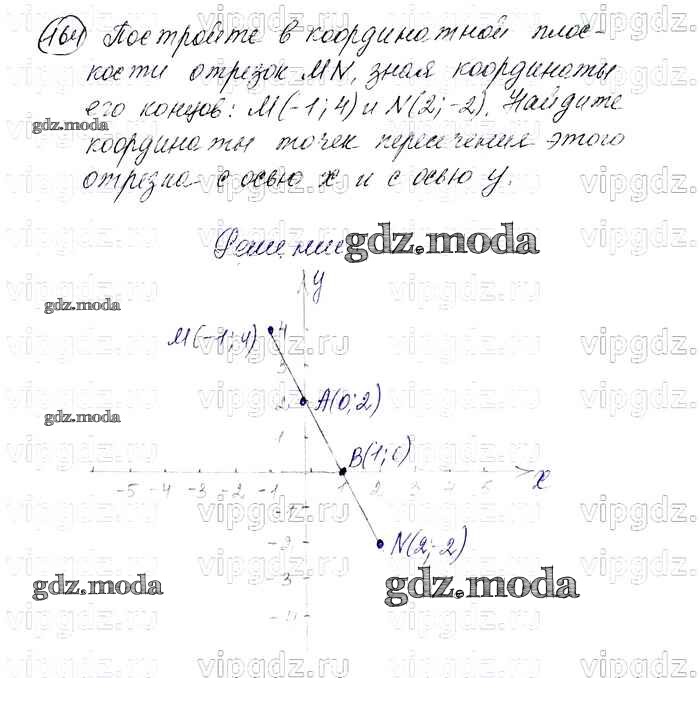 164 Постройте в координатной плос-
кости отрезок MN, зная координаты
его концов: M(-1; 4) и N(2; -2). Найдите
координаты точек пересечения этого
отрезка с осью x и с осью y.
Решение
y
M(-1; 4) 4
3
2 A(0; 2)
1
B(1; 0)
-5 -4 -3 -2 -1 1 2 3 4 5 x
-1
-2 N(2; -2)
-3
-4
gdz.moda
gdz.moda
gdz.moda
gdz.moda
gdz.moda
gdz.moda
vipgdz.ru